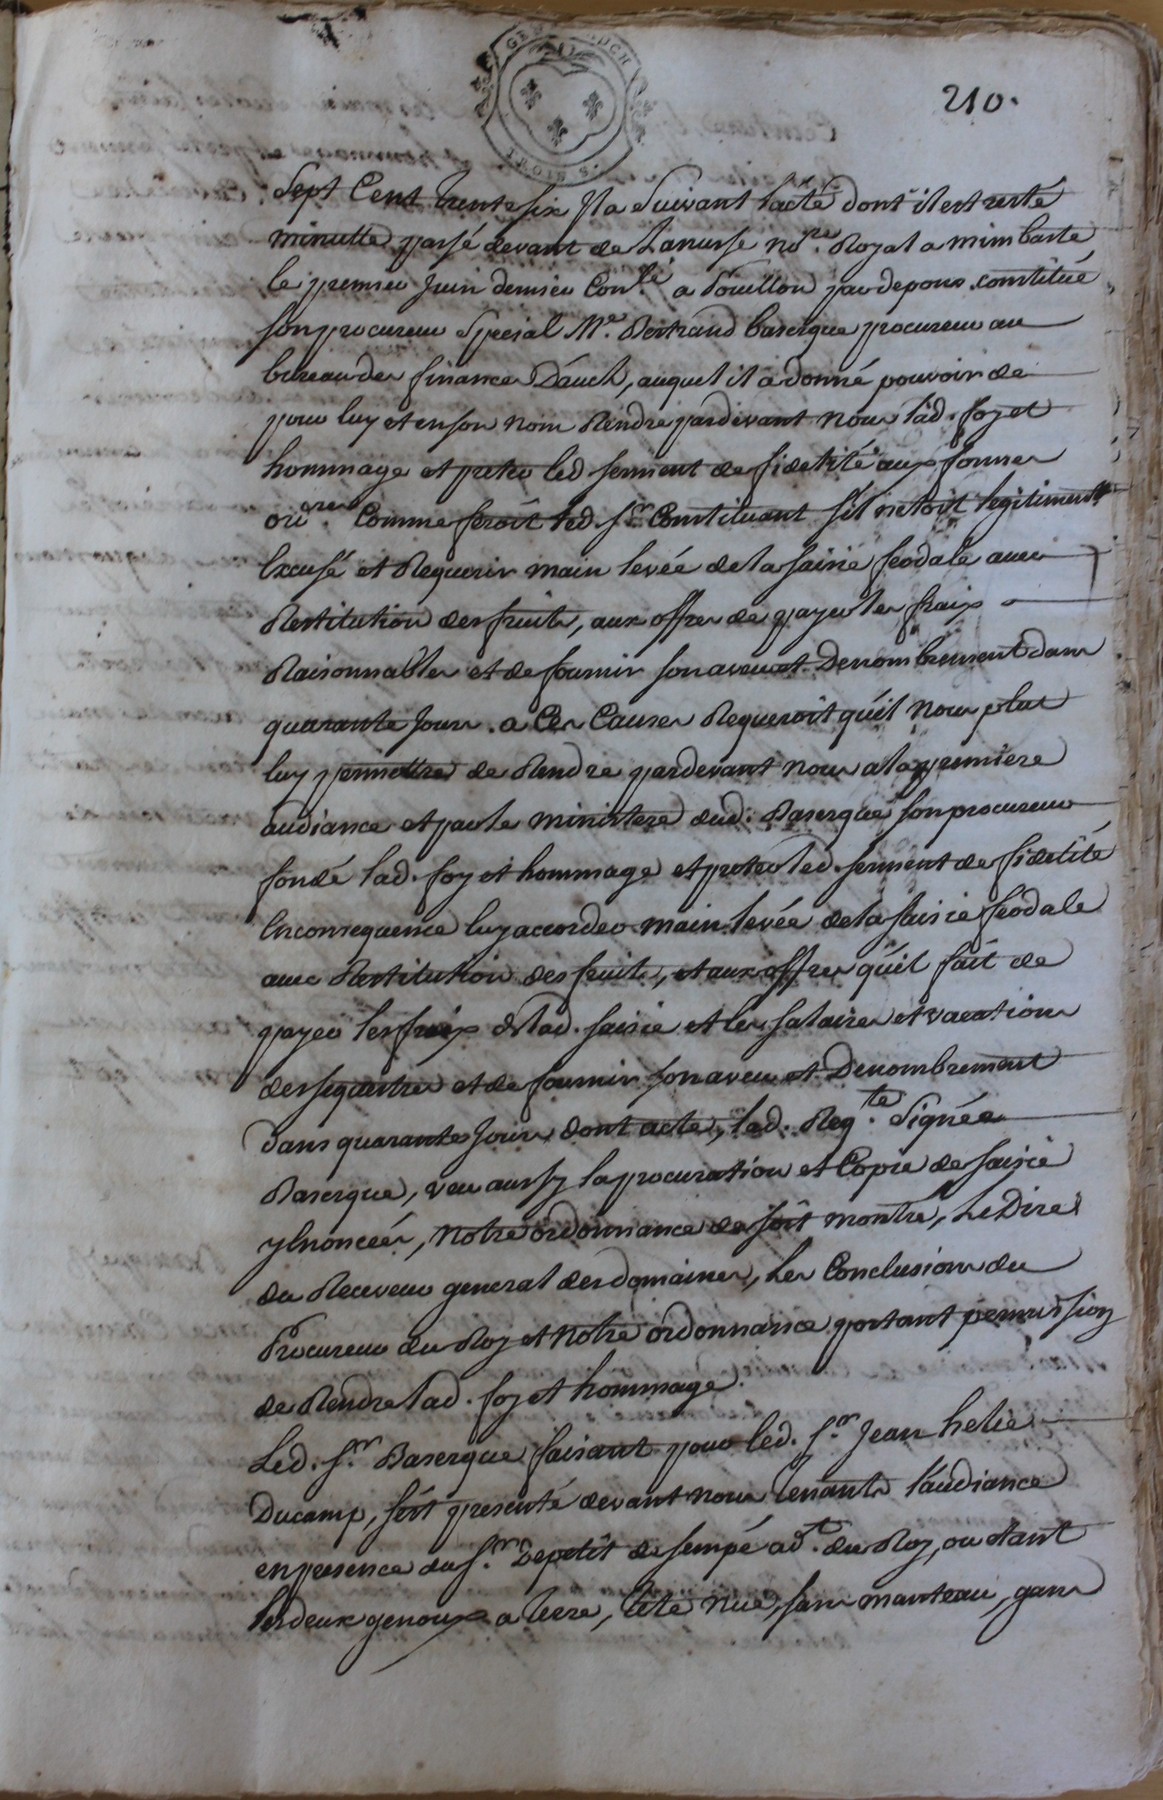 GEN D'AUCH
TROIS S.
210.
Sept Cent trente six Il a Suivant l'acte dont il est resté
minutte passé devant de Lanusse no.re Royal a mimbaste
le premier Juin dernier Con.lé a Pouillon par depons. constitué
son procureur Special M.e Bertrand baserque procureur au
bureau des finances D'auch, auquel il a donné pouvoir de
pour luy et en son nom Rendre pardevant nous lad. foy et
hommage et preter led. serment de fidelité aux formes
ori.res Comme feroit led. S.r Constituant S'il n'etoit legitimem.t
Excusé et Requerir main levée de la saisie feodale avec
Restitution des fruits, aux offres de payer les fraix
Raisonnables et de fournir son aveu et Denombrement dans
quarante Jours. a Ces Causes Requeroit qu'il nous plut
luy permettre de Rendre pardevant nous a la premiere
audiance et par le ministere dud. Baserque son procureur
fondé lad. foy et hommage et preter led. serment de fidelité
En consequence luy accorder main levée de la saisie feodale
avec Restitution des fruits, et aux offres qu'il fait de
payer les fraix de lad. saisie et les salaires et vacations
des sequestres et de fournir son aveu et Denombrement
dans quarantes Jours, dont acte, lad. Req.te Signée
Baserque, veu aussy la procuration et Copie de saisie
y Enoncées, notre ordonnance de soit montré, Le Dire
du Receveur general des domaines, Les Conclusions du
Procureur du Roy et notre ordonnance portant permission
de Rendre lad. foy et hommage.
Led. S.r Baserque faisant pour led. S.r Jean helie
Ducamp, s'est presenté devant nous tenants l'audiance
en presence du S.r Depetit de sempé ad.t du Roy, ou etant
les deux genoux a terre, tete nue, sans manteau, gans